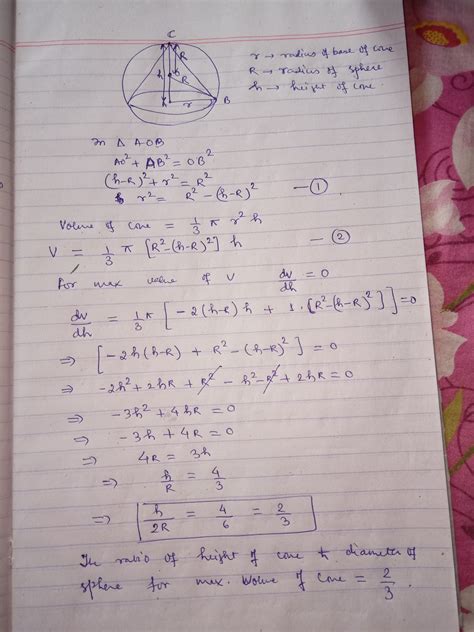 C
r → radius of base of cone
R → radius of sphere
h → height of cone
R
h
R
r
B
In Δ AOB
AO² + AB² = OB²
(h-R)² + r² = R²
r² = R² - (h-R)² — ①
Volume of cone = 1/3 π r² h
V = 1/3 π [R² - (h-R)²] h — ②
For max value of V dv/dh = 0
dv/dh = 1/3 π [ -2(h-R)h + 1·[R² - (h-R)²] ] = 0
⇒ [ -2h(h-R) + R² - (h-R)² ] = 0
⇒ -2h² + 2hR + R² - h² - R² + 2hR = 0
⇒ -3h² + 4hR = 0
⇒ -3h + 4R = 0
⇒ 4R = 3h
⇒ h/R = 4/3
⇒ h/2R = 4/6 = 2/3
The ratio of height of cone to diameter of
sphere for max. Volume of Cone = 2/3.